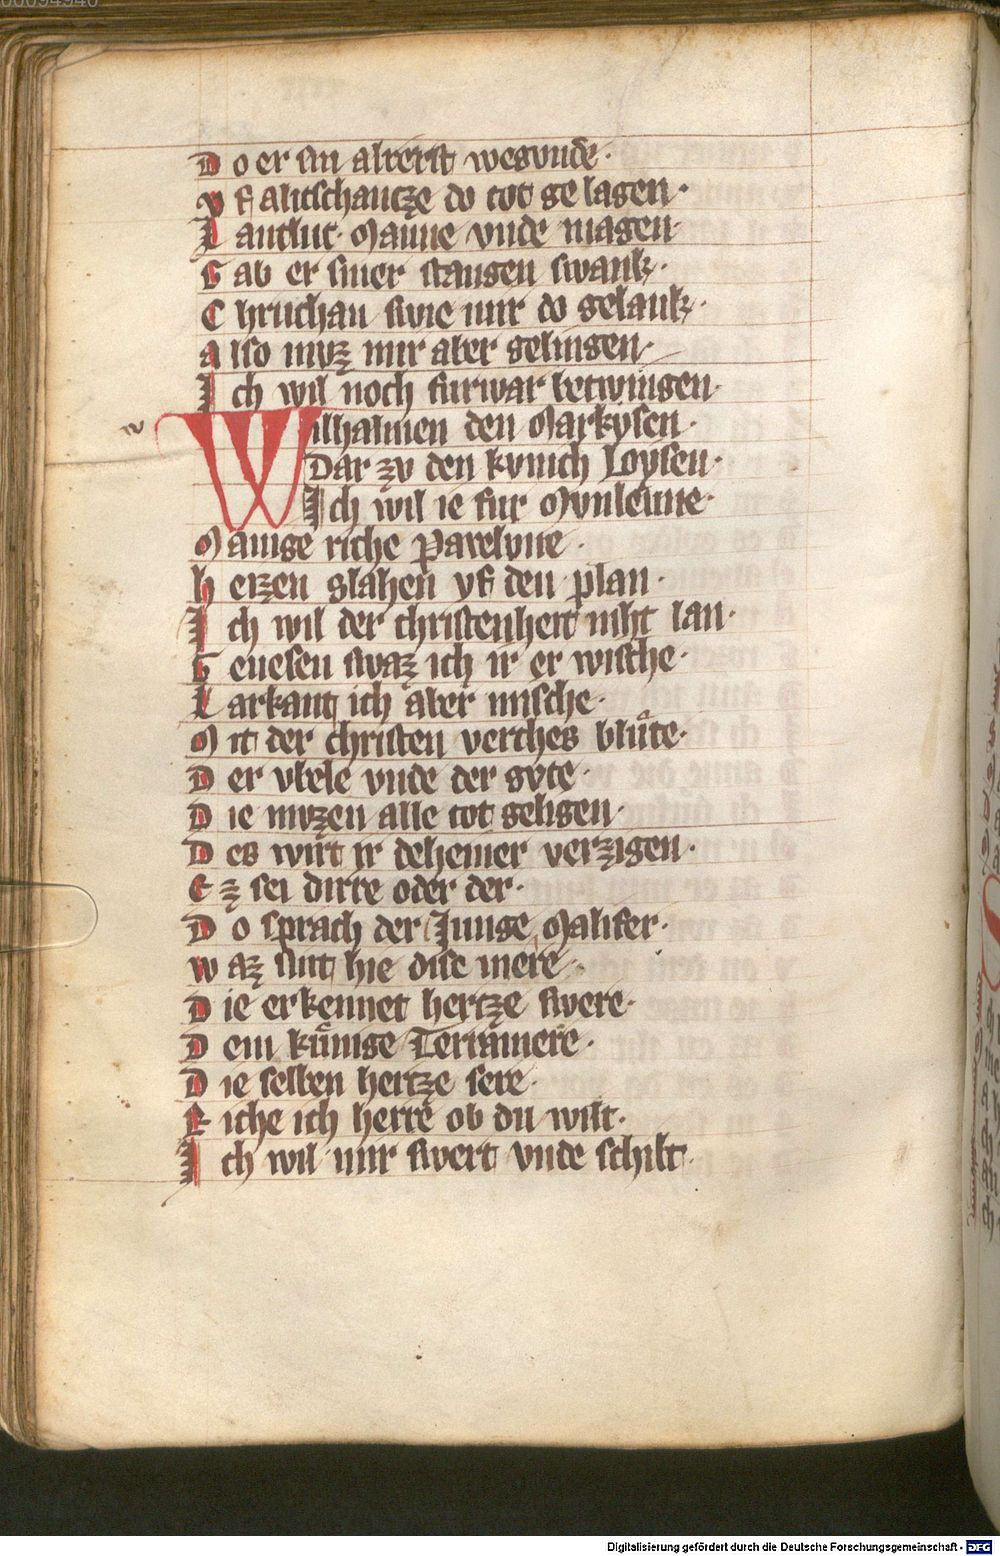 Do er sin alrerst wegunde·
vf alitschantze do tot gelagen·
Lantlut· Manne vnde magen·
Gab er siner stangen swank·
Chruchan swie mir do gelank·
also muz mir aber gelingen·
Ich wil noch furwar betwingen·
Wilhalmen den Markysen·
Dar zv den kvnich Loysen·
Ich wil ie fur Mvnleune·
Manige riche Pavelvne·
heizen slahen vf den plan·
Ich wil der christenheit niht lan·
Genesen swaz ich ir er wische·
Larkant ich aber mische·
Mit der christen verches blůte·
Der vbele vnde der gvte·
Die mvzen alle tot geligen·
Des wirt ir deheiner verzigen·
Ez sei dirre oder der·
Do sprach der Junge Malifer·
waz sint hie dise mere·
Die erkennet hertze swere·
Dem kůnige Terramere·
Die selben hertze sere·
Riche ich herre ob du wilt·
Ich wil mir swert vnde schilt·
Digitalisierung gefördert durch die Deutsche Forschungsgemeinschaft - DFG